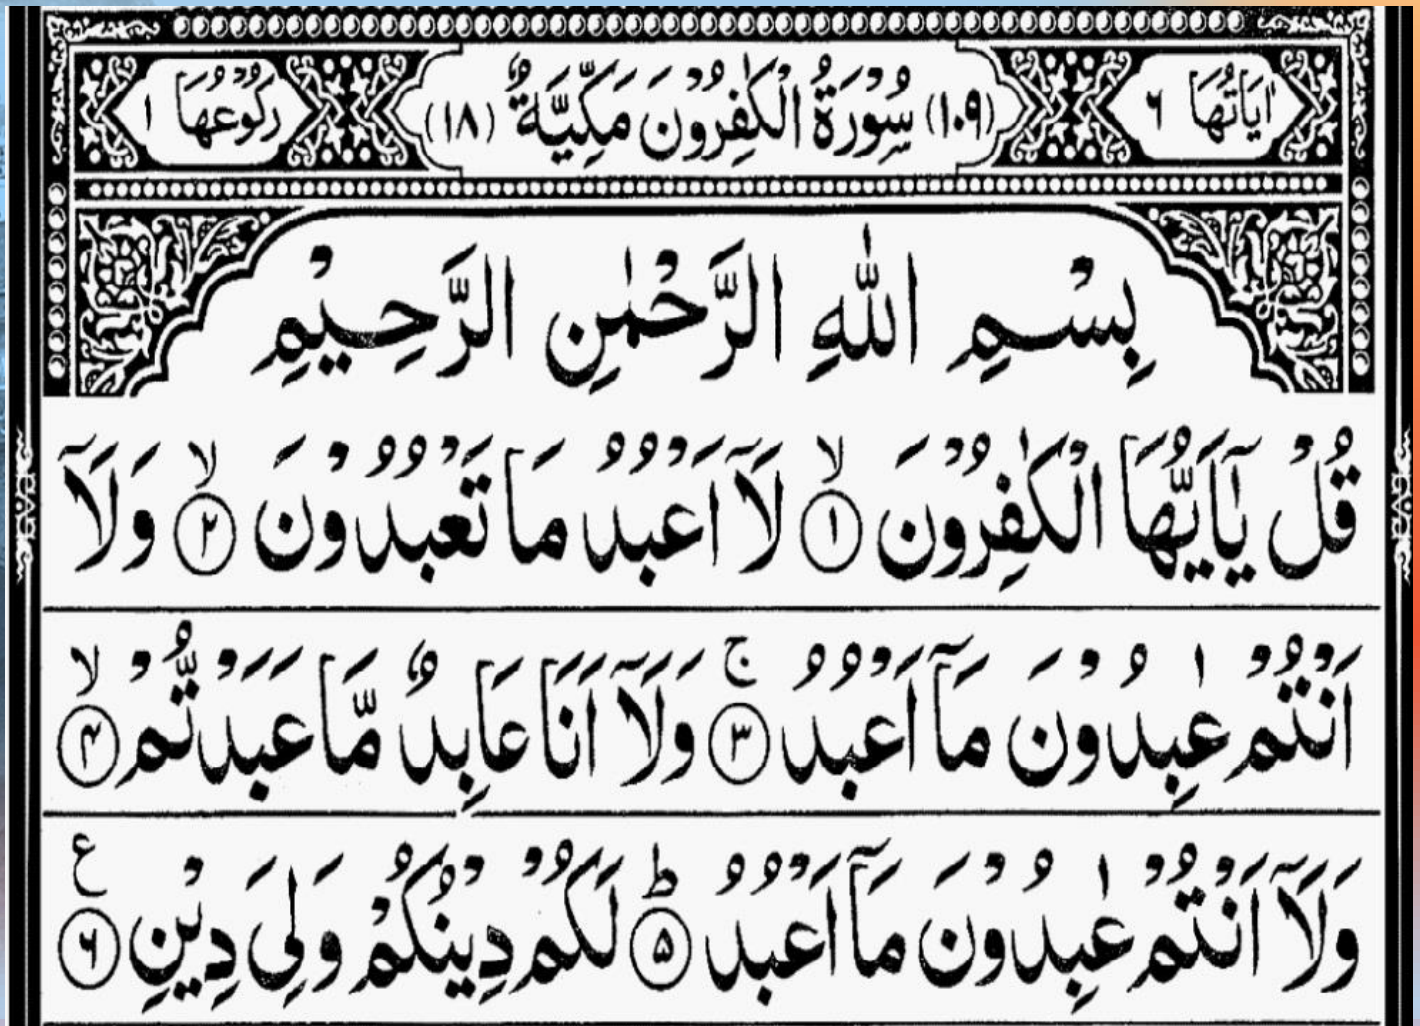 اٰيَاتُهَا ٦ (١٠٩) سُوْرَةُ الْكٰفِرُوْنَ مَكِّيَّةٌ (١٨) رُكُوْعُهَا ١
بِسْمِ اللّٰهِ الرَّحْمٰنِ الرَّحِيْمِ
قُلْ يٰۤاَيُّهَا الْكٰفِرُوْنَ ۙ﴿۱﴾ لَاۤ اَعْبُدُ مَا تَعْبُدُوْنَ ۙ﴿۲﴾ وَلَاۤ
اَنْتُمْ عٰبِدُوْنَ مَاۤ اَعْبُدُ ۚ﴿۳﴾ وَلَاۤ اَنَا عَابِدٌ مَّا عَبَدْتُّمْ ۙ﴿۴﴾
وَلَاۤ اَنْتُمْ عٰبِدُوْنَ مَاۤ اَعْبُدُ ؕ﴿۵﴾ لَكُمْ دِيْنُكُمْ وَلِىَ دِيْنِ ﴿۶﴾ ع